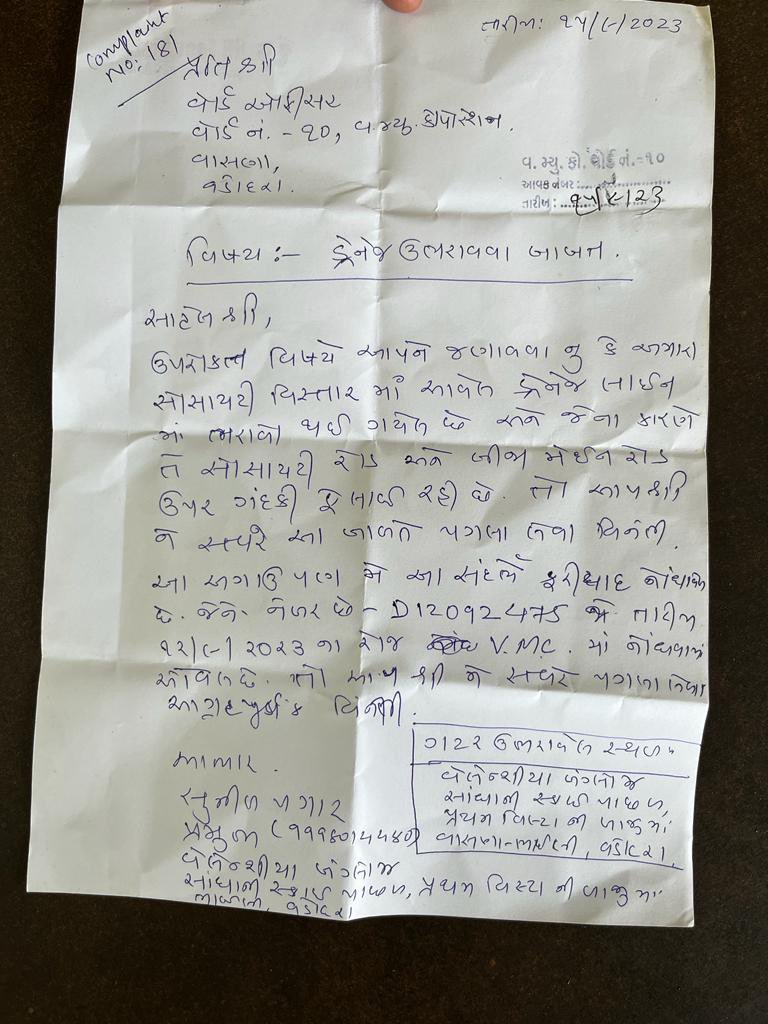 તારીખ: ૧૫/૯/૨૦23
Complaint
No: 181
પ્રતિ શ્રી
વોર્ડ ઓફીસર
વોર્ડ નં. - ૧૦, વ.મ્યુ. કોર્પોરેશન.
વાસણા,
વડોદરા.
વ. મ્યુ. કો. વોર્ડ નં.-૧૦
આવક નંબર:
તારીખ:
વિષય :- ડ્રેનેજ ઉભરાવવા બાબત.
સાહેબ શ્રી,
ઉપરોક્ત વિષયે આપને જણાવવા નુ કે અમારા
સોસાયટી વિસ્તાર માં આવેલ ડ્રેનેજ લાઈન
માં ભરાવો થઈ ગયેલ છે અને જેના કારણે
તે સોસાયટી રોડ અને બીજા મેઈન રોડ
ઉપર ગંદકી ફેલાઈ રહી છે. તો આપશ્રી
ને સત્વરે આ બાબતે પગલા લેવા વિનંતી.
આ અગાઉ પણ મે આ સંદર્ભે ફરીયાદ નોંધાવેલ
છે. જેનો નંબર છે - D12092475 જે તારીખ
૧૨/૯/૨૦૨૩ ના રોજ V.M.C. માં નોંધવામાં
આવેલ છે. તો આપ શ્રી ને સત્વરે પગલા લેવા
આગ્રહપૂર્વક વિનંતી.
ગટર ઉભરાવેલ સ્થળ
વેલેન્શીયા બંગલોઝ
સાંઘાની સ્કાઈ પાછળ,
પ્રથમ વિસ્ટા ની બાજુમાં
વાસણા-ભાયલી, વડોદરા.
આભાર.
સુનીલ પગાર
પ્રમુખ
વેલેન્શીયા બંગલોઝ
સાંઘાની સ્કાઈ પાછળ, પ્રથમ વિસ્ટા ની બાજુમાં
ભાયલી, વડોદરા